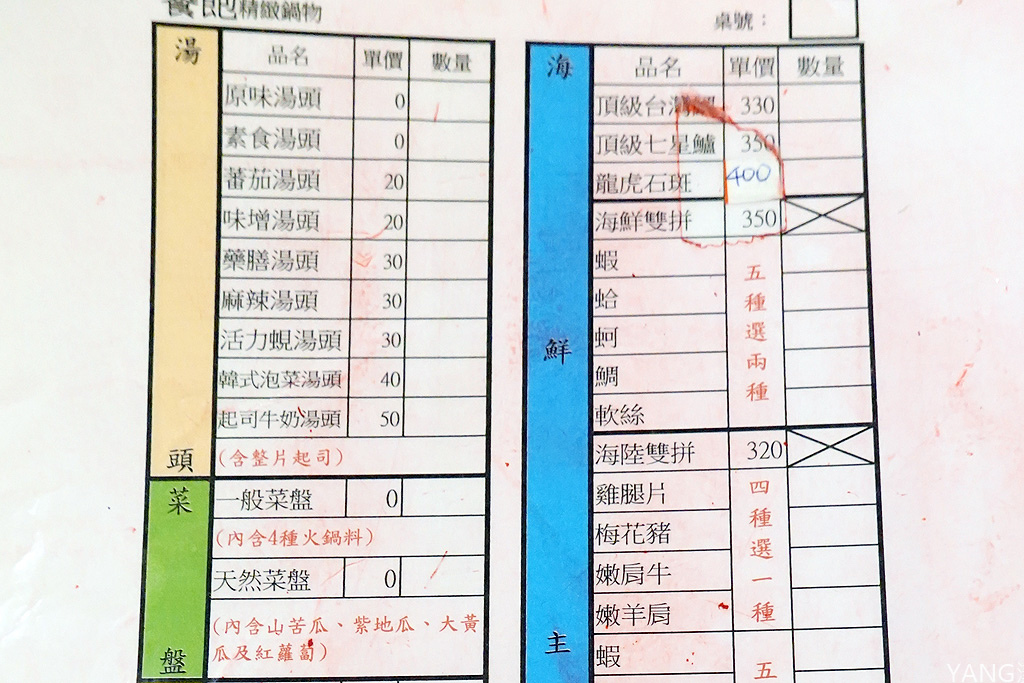 餐飽精緻鍋物
桌號：
湯頭
品名 單價 數量
原味湯頭 0
素食湯頭 0
蕃茄湯頭 20
味增湯頭 20
藥膳湯頭 30
麻辣湯頭 30
活力蜆湯頭 30
韓式泡菜湯頭 40
起司牛奶湯頭 50
(含整片起司)
菜盤
一般菜盤 0
(內含4種火鍋料)
天然菜盤 0
(內含山苦瓜、紫地瓜、大黃
瓜及紅蘿蔔)
海鮮主
品名 單價 數量
頂級台灣 330
頂級七星鱸 350
龍虎石斑 400
海鮮雙拼 350
蝦
蛤
蚵
鯛
軟絲
五種選兩種
海陸雙拼 320
雞腿片
梅花豬
嫩肩牛
嫩羊肩
四種選一種
蝦
五
YANG